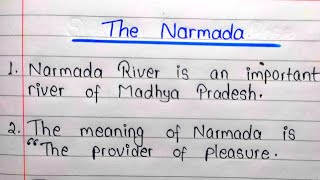 The Narmada
1. Narmada River is an important
river of Madhya Pradesh.
2. The meaning of Narmada is
"The provider of pleasure.